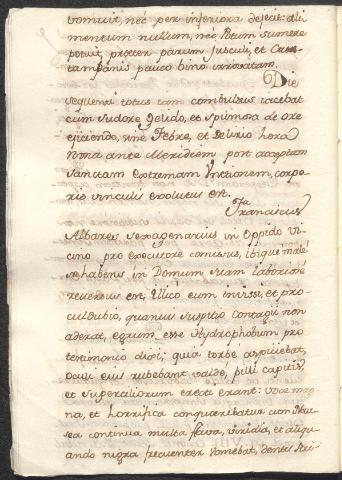 vomuit, nec per inferiora dejecit: ali
mentum nullum, nec Potum sumere
potuit, præter parum jusculi, et
pauco vino irroratam.
Die
sequenti totus iam combustus iacebat
cum Sudore gelido, et Spumosa de ore
ejiciendo, sine Febre, et Delirio hora
nona ante Meridiem post acceptam
Sanctam Extremam Unctionem, corpo
rio vinculis exolutus est.
Franciscus
Albares sexagenarius in Oppido vi
cino pro executore comissus, ibique malè
se habens in Domum suam laboriosè
reversus est, Illico eum invissi, et pro
culdubio, quamvis suspitio contagii non
aderat, egrum esse Hydrophobum pro
testimonio dixi; quia torbe aspiciebat,
oculi eius rubebant valdè, pilli capitis,
et superciliorum erecti erant: voce mag
na, et horrifica conquerebatur cum Nau
sea continua multa flava, viridia, et aliqu
ando nigra frequenter vomebat, dentes stri